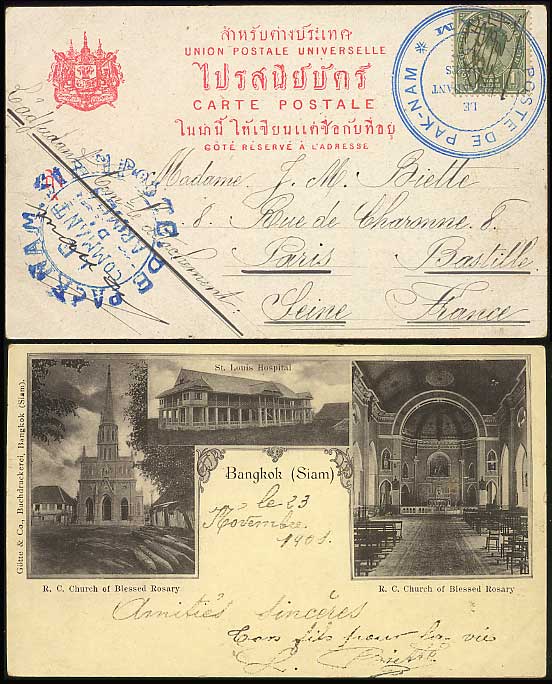 สำหรับต่างประเทศ
UNION POSTALE UNIVERSELLE
ไปรสนีย์บัตร์
CARTE POSTALE
ในน่านี้ ให้เขียนแต่ชื่อกับที่อยู่
CÔTÉ RÉSERVÉ À L'ADRESSE
POSTE DE PAK-NAM
LE
ANT
PACK-NAM
POSTE DE
COMMANDANT
Madame J. M. Bielle
8. Rue de Charonne 8.
Paris Bastille
Seine France
St. Louis Hospital
Götte & Co., Buchdruckerei, Bangkok (Siam).
Bangkok (Siam)
le 23
Novembre
1908.
R. C. Church of Blessed Rosary
R. C. Church of Blessed Rosary
Amitiés sincères
Ton fils pour la vie